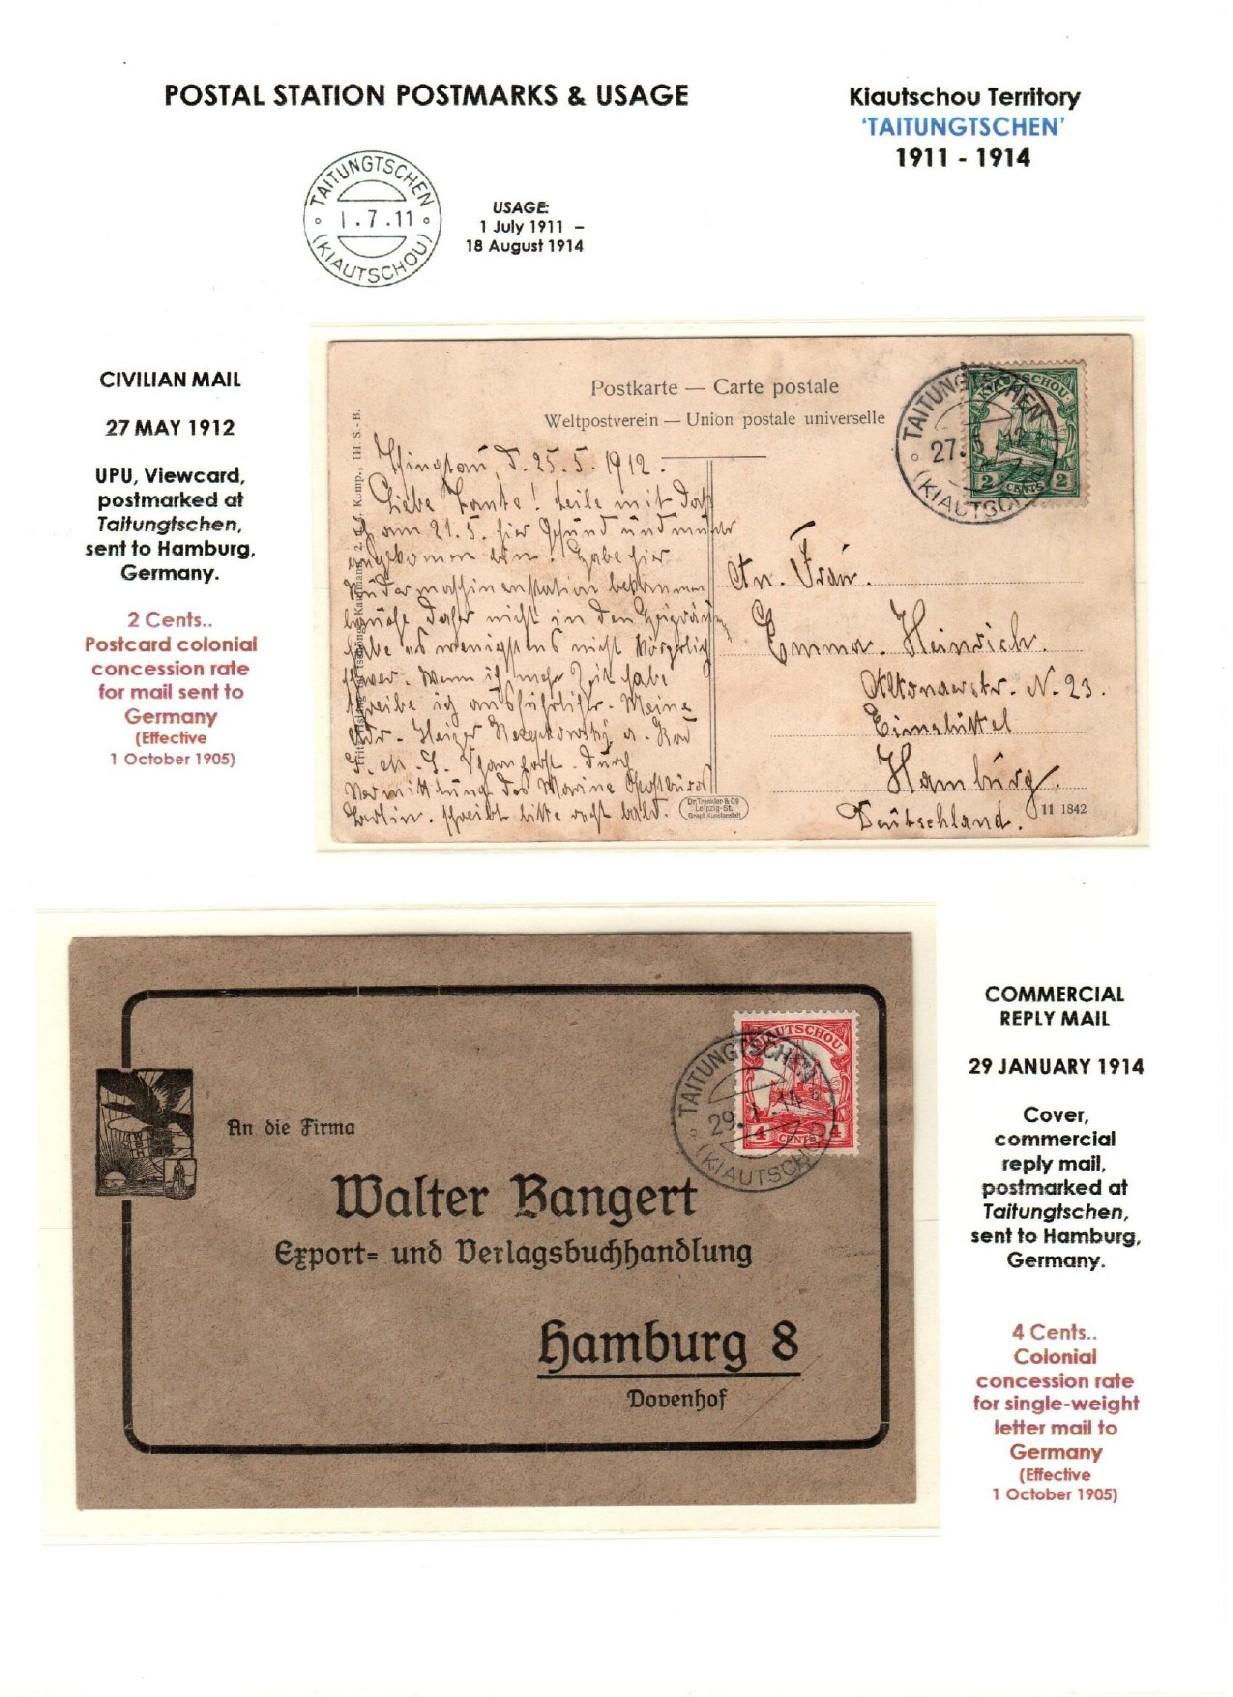 POSTAL STATION POSTMARKS & USAGE
Kiautschou Territory
‘TAITUNGTSCHEN’
1911 - 1914
TAITUNGTSCHEN
1.7.11
(KIAUTSCHOU)
USAGE:
1 July 1911 –
18 August 1914
CIVILIAN MAIL
27 MAY 1912
UPU, Viewcard,
postmarked at
Taitungtschen,
sent to Hamburg,
Germany.
2 Cents..
Postcard colonial
concession rate
for mail sent to
Germany
(Effective
1 October 1905)
Postkarte — Carte postale
Weltpostverein — Union postale universelle
TAITUNGTSCHEN
27.5.12
(KIAUTSCHOU)
KIAUTSCHOU
2 CENTS 2
Tsingtau, d. 25.5.1912.
Liebe Tante! Teile mit daß
am 21.5. hier gesund und munter
angekommen bin! Habe hier
bekommen
daher nicht in den
habe es wenigstens nicht
schwer. Wenn ich mehr Zeit habe
schreibe ich ausführlich. Meine
Adr. Heizer
durch
Vermittlung des Marine Postbüros
Berlin. schreibt bitte recht bald.
An. Frau.
Emma. Heinrich.
Altonaerstr. N. 23.
Eimsbüttel
Hamburg.
Deutschland.
Dr. Trenkler & Co
Leipzig-St.
11 1842
COMMERCIAL
REPLY MAIL
29 JANUARY 1914
Cover,
commercial
reply mail,
postmarked at
Taitungtschen,
sent to Hamburg,
Germany.
4 Cents..
Colonial
concession rate
for single-weight
letter mail to
Germany
(Effective
1 October 1905)
KIAUTSCHOU
4 CENTS 4
TAITUNGTSCHEN
29.1.14
(KIAUTSCHOU)
An die Firma
Walter Bangert
Export= und Verlagsbuchhandlung
Hamburg 8
Dovenhof